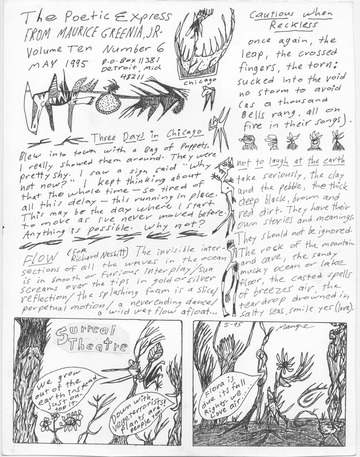 The Poetic Express
FROM MAURICE GREENIA, JR.
Volume Ten Number 6
MAY 1995
P.O. Box 11381
Detroit, Mid
48211
chicago
Cautious When
Reckless
once again, the
leap, the crossed
fingers, the torn:
sucked into the void
no storm to avoid
(as a thousand
Bells rang, all on
fire in their songs).
Three Days in Chicago
Blew into town with a Bag of Puppets.
I really showed them around. They were
pretty shy. I saw a sign said "Why
not now?" I kept thinking about
that the whole time — so tired of
all this delay — this running in place.
This may be the day where I start
to move as I've never moved before.
Anything is possible. Why not?
not to laugh at the earth
take seriously, the clay
and the pebble, the thick
deep black, brown and
red dirt. They have their
own stories and meanings.
They should not be ignored.
The rock of the mountain
and cave, the sandy
mucky ocean or lake
floor, the casted spells
of freezes air, the
teardrop drowned in
salty seas, smile yes (love).
FLOW (for
Richard Nesbitt) The invisible inter-
sections of all the waves in the ocean
is in smooth or furious interplay/sun
screams over the tips in gold or silver
reflection/the splashing foam is a slice/
perpetual motion/a neverending dance/
a wild wet flow afloat...
Surreal
Theatre
We grow
out of the
earth, instead
of just on
top of it.
Down with
vegeterrorists!
Plants are
people,
5-95
Maugre
Flora is
due its full
Rights. We
love air.